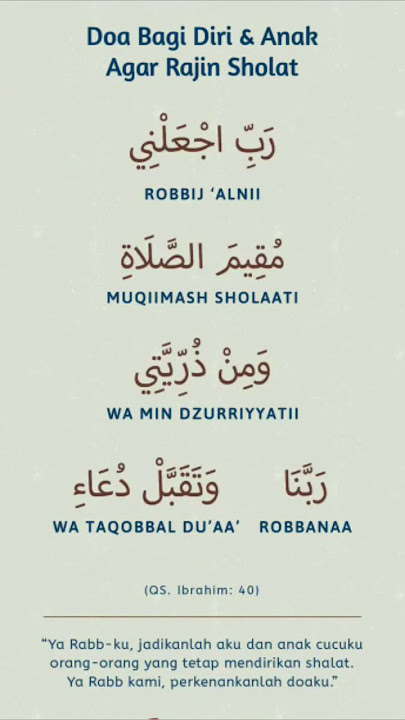 Doa Bagi Diri & Anak
Agar Rajin Sholat
رَبِّ اجْعَلْنِي
ROBBIJ ‘ALNII
مُقِيمَ الصَّلَاةِ
MUQIIMASH SHOLAATI
وَمِنْ ذُرِّيَّتِي
WA MIN DZURRIYYATII
رَبَّنَا وَتَقَبَّلْ دُعَاءِ
WA TAQOBBAL DU’AA’ ROBBANAA
(QS. Ibrahim: 40)
“Ya Rabb-ku, jadikanlah aku dan anak cucuku
orang-orang yang tetap mendirikan shalat.
Ya Rabb kami, perkenankanlah doaku.”